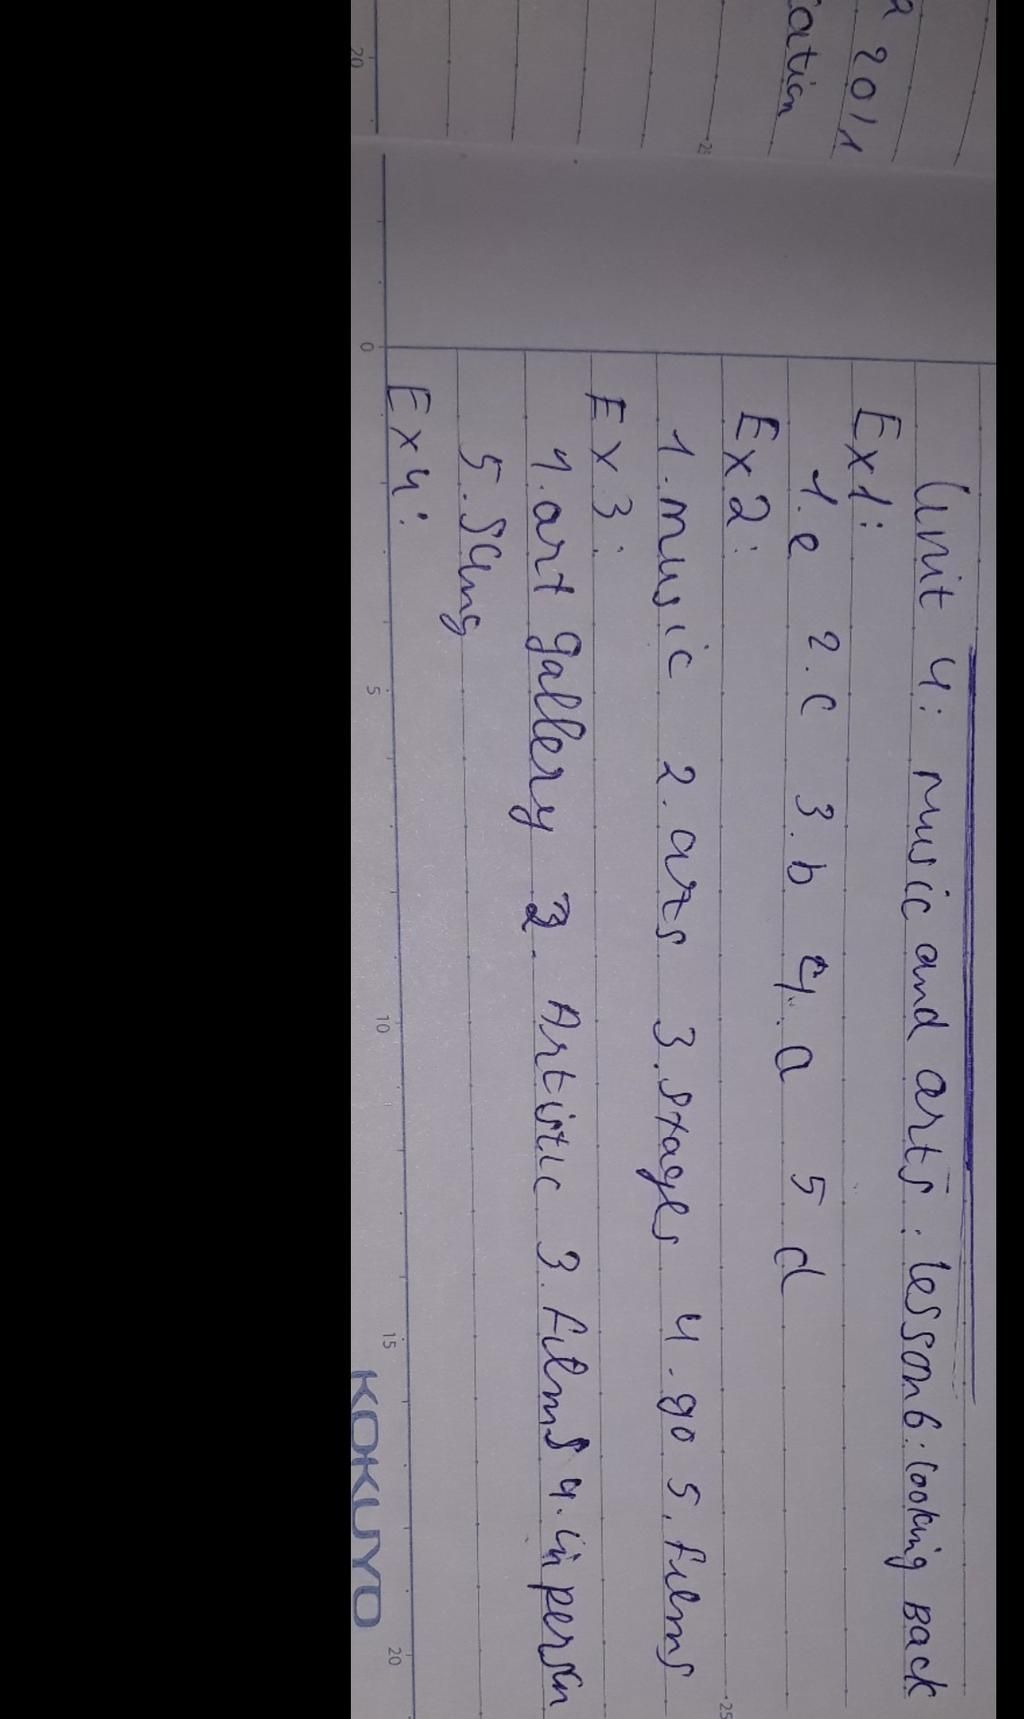 2011
Unit 4: music and arts. lesson 6: looking Back
Ex1:
1. e 2. c 3. b 4. a 5 d
Ex2:
1. music 2. ars 3. stages 4. go 5. films
Ex 3:
1. art gallery 2. Artistic 3. films 4. in person
5.
Ex4:
0 5 10 15 20
KOKUYO